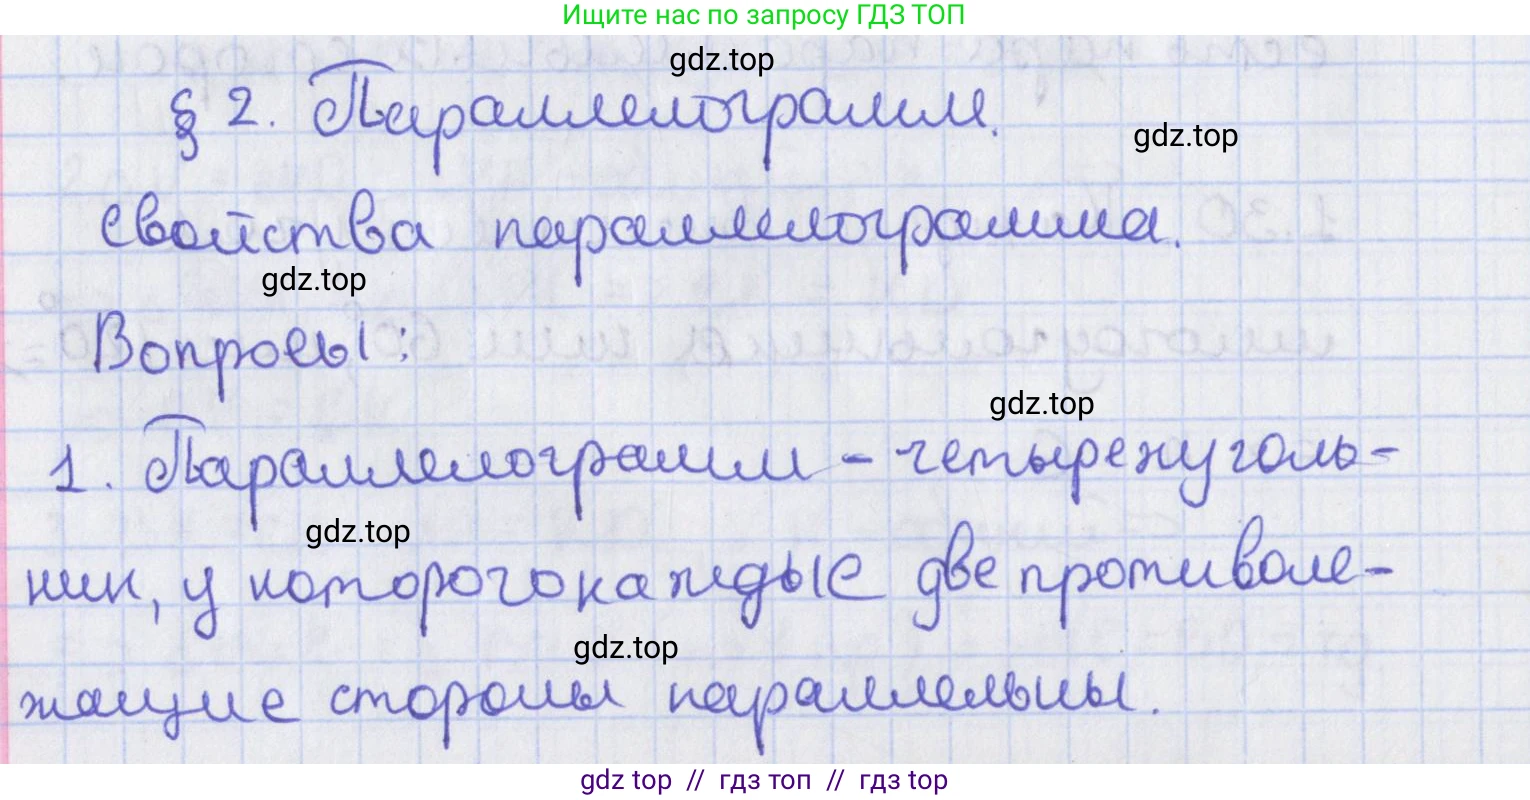 Ищите нас по запросу ГДЗ ТОП
gdz.top
§ 2. Параллелограмм.
gdz.top
свойства параллелограмма.
gdz.top
Вопросы:
gdz.top
1. Параллелограмм - четырехуголь-
gdz.top
ник, у которого каждые две противоле-
gdz.top
жащие стороны параллельны.
gdz top // гдз топ // гдз top